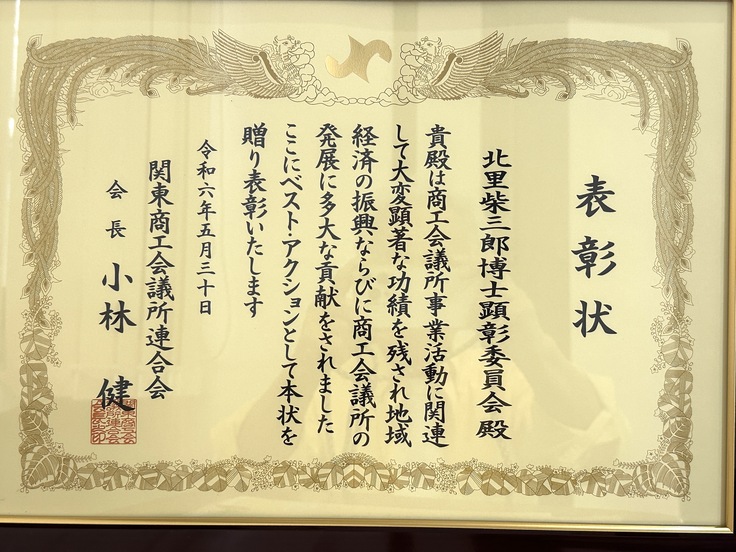 表彰状
北里柴三郎博士顕彰委員会殿
貴殿は商工会議所事業活動に関連
して大変顕著な功績を残され地域
経済の振興ならびに商工会議所の
発展に多大な貢献をされました
ここにベスト・アクションとして本状を
贈り表彰いたします
令和六年五月三十日
関東商工会議所連合会
会長 小林 健